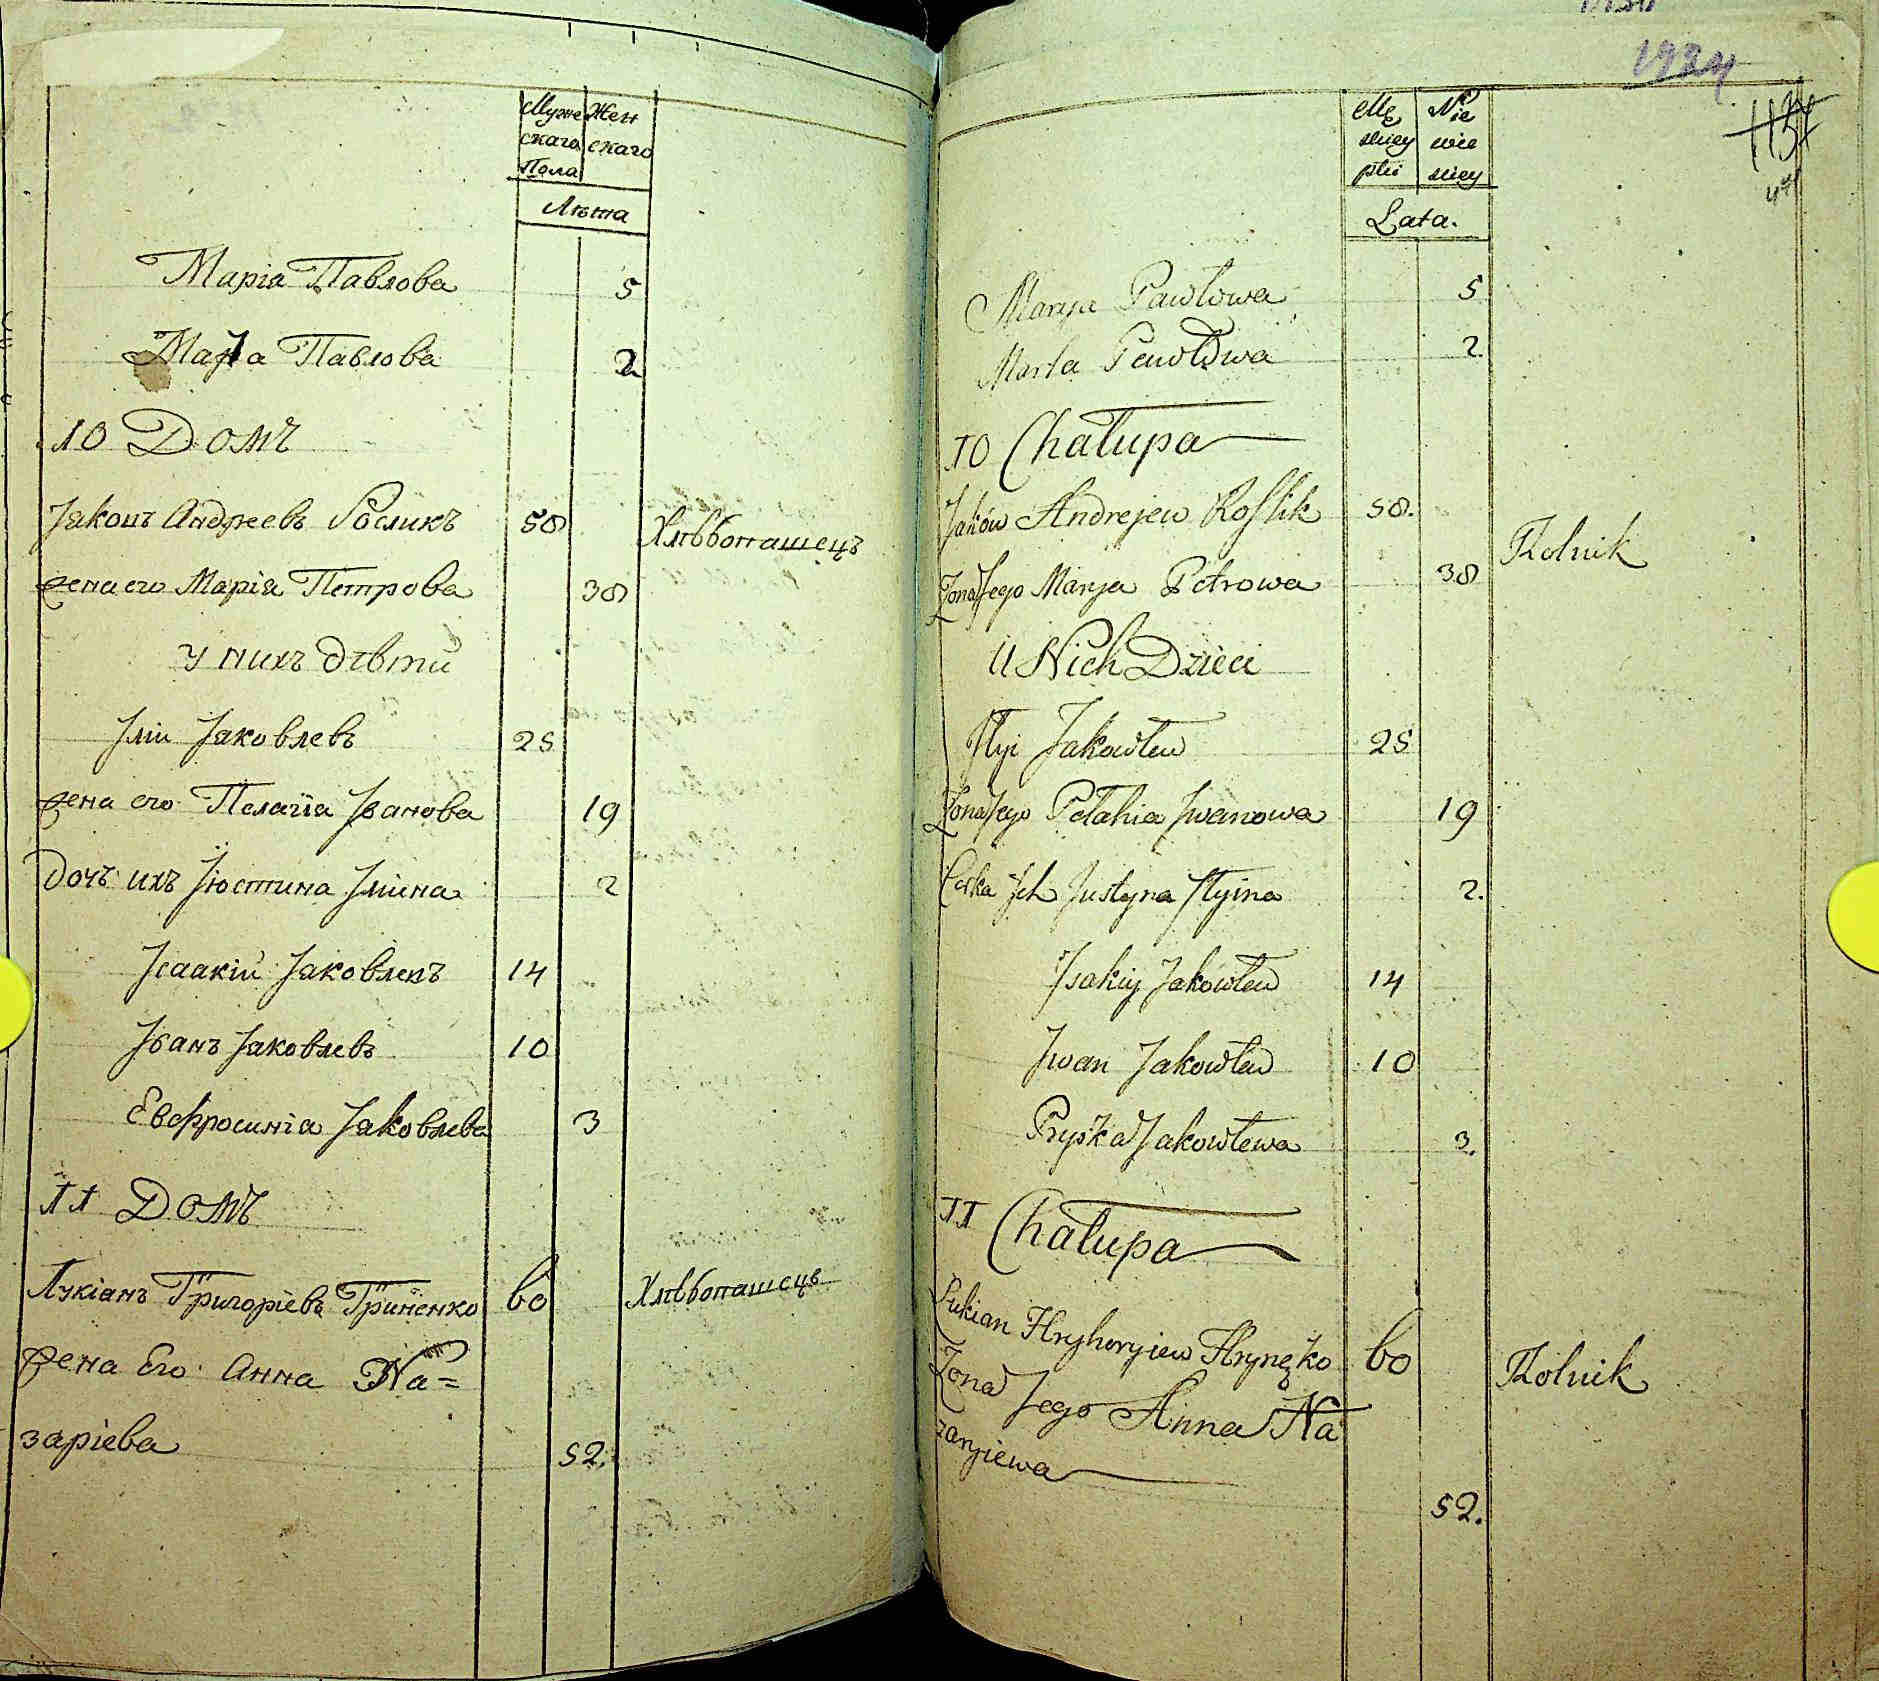 Муже Жен
скаго скаго
Пола
Лѣта
Марія Павлова 5
Марѳа Павлова 2
10 Домъ
Іаковъ Андреевъ Росликъ 58 Хлѣбопашецъ
жена его Марія Петрова 38
у нихъ дѣти
Ілій Іаковлевъ 25
жена его Пелагіа Іванова 19
дочь ихъ Іюстина Іліина 2
Ісаакій Іаковлевъ 14
Іванъ Іаковлевъ 10
Евфросинія Іаковлева 3
11 Домъ
Лукіанъ Григоріевъ Гриненко 60 Хлѣбопашецъ
жена Его Анна На=
заріева 52.
1924
Mę Nie
skiey wie
płci skiey
Lata.
Marya Pawłowa 5
Marta Pawłowa 2.
10 Chałupa
Jaków Andrejew Roslik 58. Rolnik
Żona Jego Marya Petrowa 38
U Nich Dzieci
Ilyi Jakowlew 25
Żona Jego Pelahia Iwanowa 19
Curka Ich Justyna Ilyina 2.
Isakiy Jakowlew 14
Iwan Jakowlew 10
Pryśka Jakowlewa 3.
11 Chałupa
Łukian Hryhoryiew Hrynęko 60 Rolnik
Żona Jego Anna Na
zaryiewa
52.